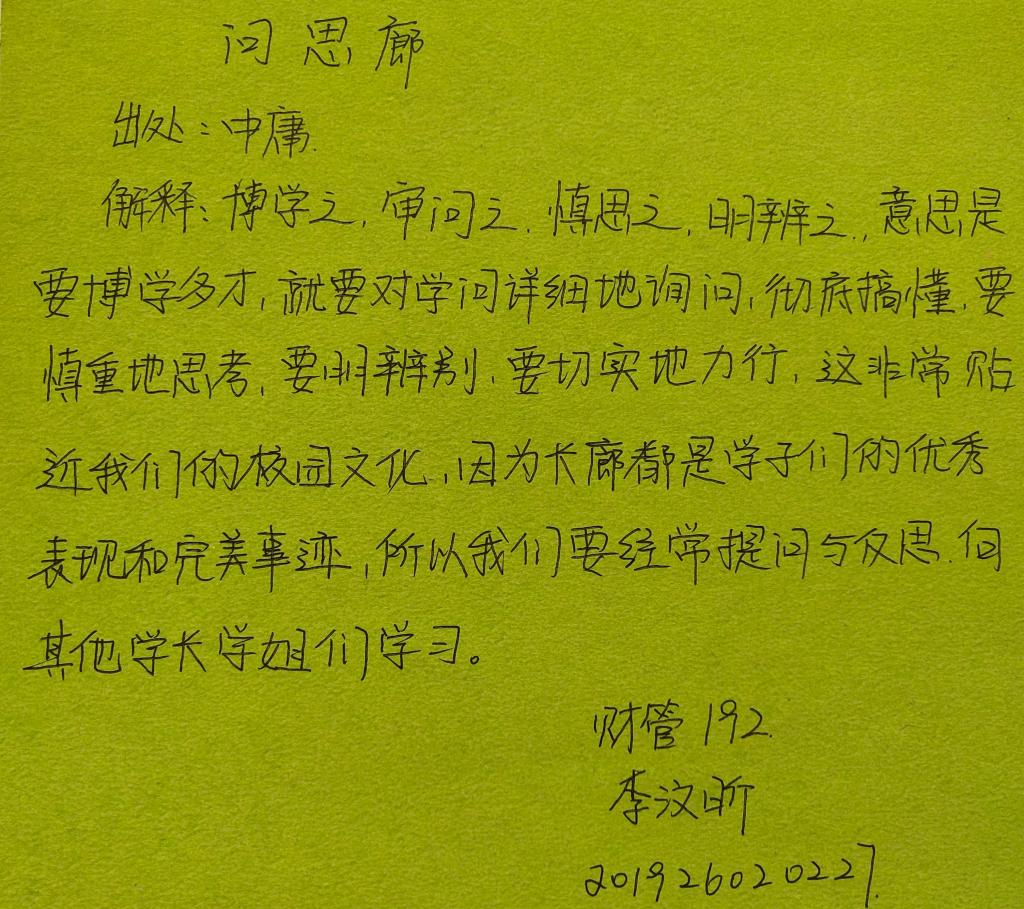 问思廊
出处：中庸.
解释：博学之，审问之．慎思之，明辨之．，意思是
要博学多才，就要对学问详细地询问，彻底搞懂，要
慎重地思考，要明辨别，要切实地力行，这非常贴
近我们的校园文化，因为长廊都是学子们的优秀
表现和完美事迹，所以我们要经常提问与反思．向
其他学长学姐们学习。
财管192.
李汶昕
201926020227.